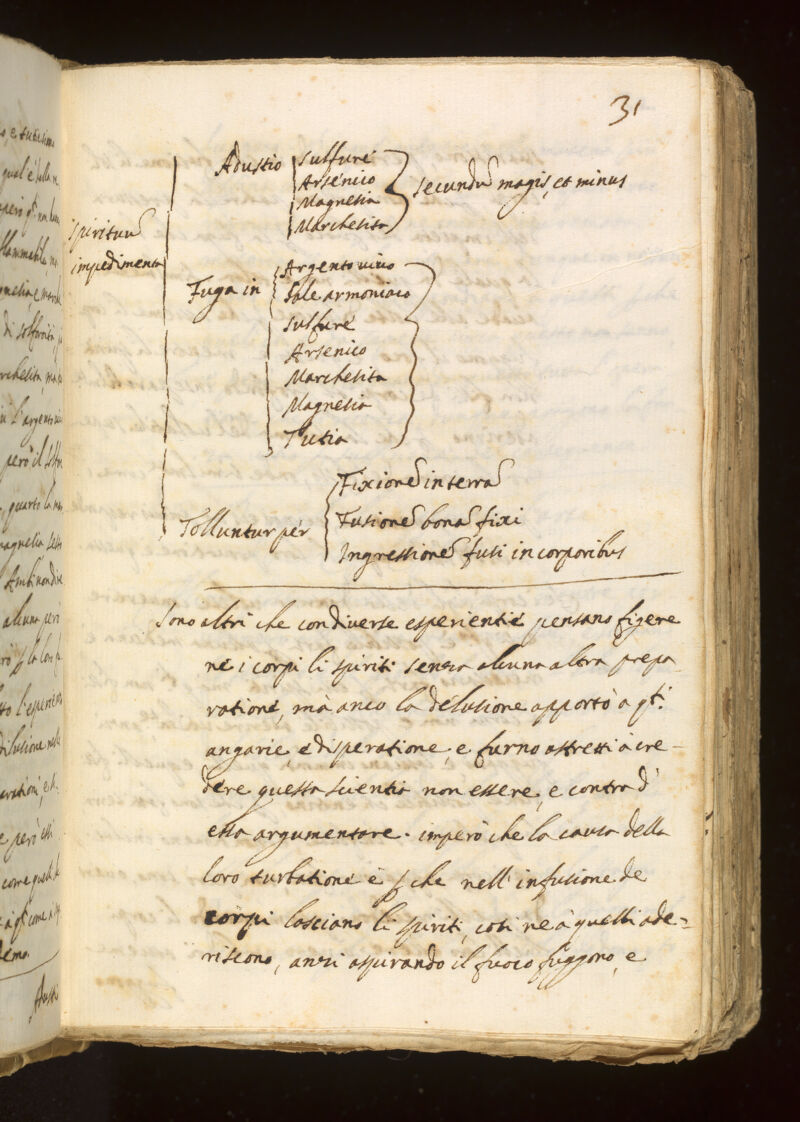 31
Adustio
sulfure
Arsenico
Magnesia
Marchesita
secundū magis, et minus
spirituū
impedimenta
Fuga in
Argento vivo
Sale armoniaco
sulfure
Arsenico
Marchesita
Magnesia
Tutia
Tolluntur per
Fixionē in terrā
Fusionē bonā fixi
Ingressionē fusi in corporibus
Sono altri che con diverse esperientie pensano figere
ne i corpi li spiriti senza alcuna altra prepa
ratione, mà anco la delusione apportò a qti
angarie, e disperatione, e furno astretti à cre-
dere questa scientia non essere, e contra d'
essa argumentare. imperò che la causa della
loro turbatione è p che nell'infusione de
corpi lasciano li spiriti, così ne à quelli ade=
riscono, anzi aspirando il fuoco fuggono, e